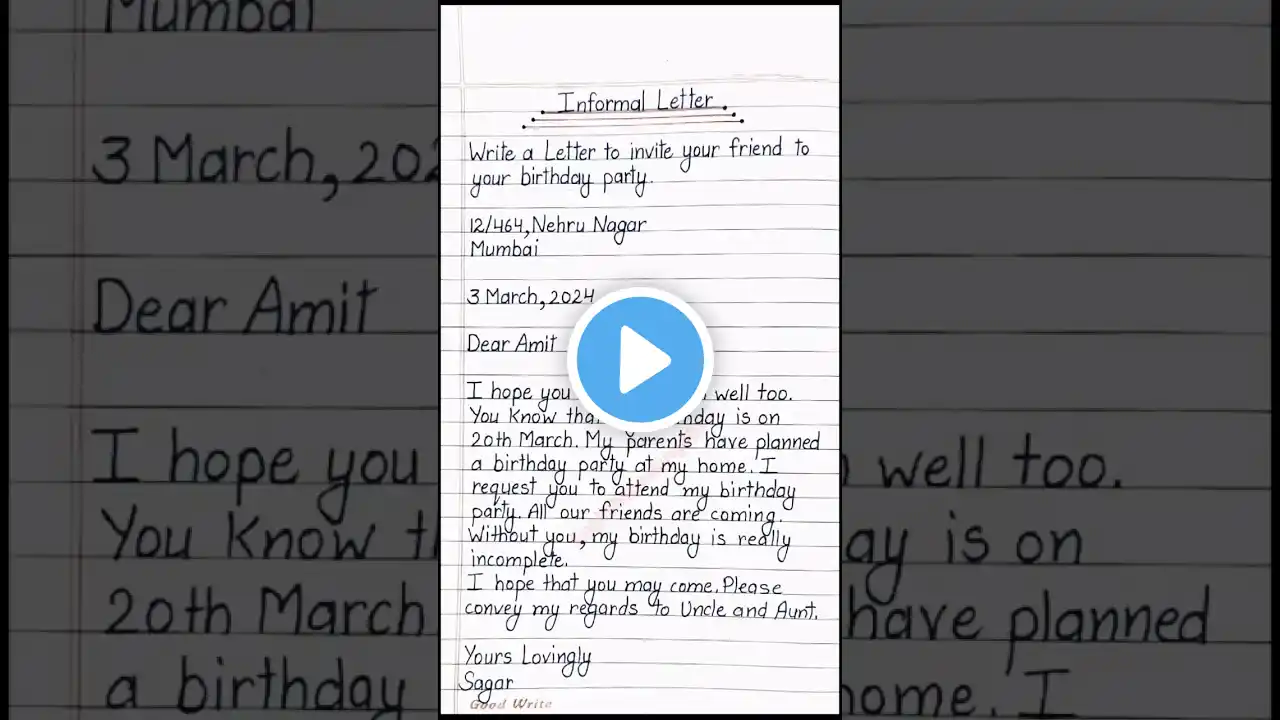 Informal Letter
Write a Letter to invite your friend to
your birthday party.
12/464, Nehru Nagar
Mumbai
3 March, 2024
Dear Amit
I hope you well too.
You Know tha nday is on
20th March. My parents have planned
a birthday party at my home. I
request you to attend my birthday
party. All our friends are coming.
Without you, my birthday is really
incomplete.
I hope that you may come. Please
convey my regards to Uncle and Aunt.
Yours Lovingly
Sagar
Good Write
Mumbai
3 March, 202
Dear Amit
I hope you well too.
You Know t ay is on
20th March have planned
a birthday ome. I